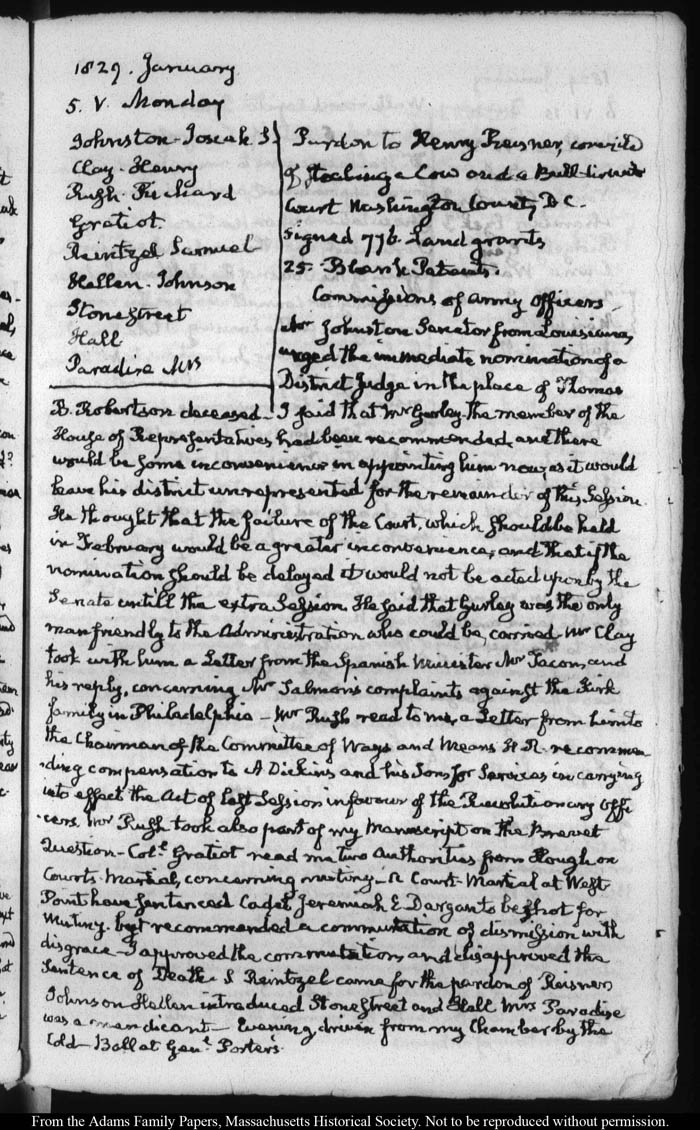 1829. January.
5. V. Monday
Johnston. Josiah S.
Clay. Henry
Rush. Richard
Gratiot.
Reintzel Samuel
Hellen. Johnson
Stonestreet
Hall
Paradise Mrs
Pardon to Henry Reisner, convicted
of stealing a Cow and a Bull—Circuit
Court Washington County D.C.
Signed 776. Land grants
25. Blank Patents.
Commissions of army Officers
Mr Johnston Senator from Louisiana,
urged the immediate nomination of a
District Judge in the place of Thomas
B. Robertson deceased—I said that Mr Gurley the member of the
House of Representatives had been recommended, and there
would be some inconvenience in appointing him now, as it would
leave his district unrepresented for the remainder of this Session.
He thought that the failure of the Court, which should be held
in February would be a greater inconvenience, and that if the
nomination should be delayed it would not be acted upon by the
Senate untill the extra Session. He said that Gurley was the only
man friendly to the Administration who could be carried. Mr Clay
took with him a Letter from the Spanish Minister Mr Tacon, and
his reply, concerning Mr Salmon's complaints against the
family in Philadelphia—Mr Rush read to me, a Letter from him to
the Chairman of the Committee of Ways and Means H.R. recommen
ding compensation to A Dickins and his Sons for Services in carrying
into effect the Act of last Session in favour of the Revolutionary Offi
cers. Mr Rush took also part of my Manuscript on the Brevet
Question—Col.l Gratiot read me two Authorities from Hough on
Courts-Martial, concerning mutiny—A Court-Martial at West-
Point have sentenced Cadet Jeremiah E Dargan to be shot for
Mutiny. but recommended a commutation of dismission with
disgrace—I approved the commutation, and disapproved the
Sentence of Death. S Reintzel came for the pardon of Reisner
Johnson Hellen introduced Stonestreet and Hall. Mrs Paradise
was a mendicant—Evening, driven from my Chamber by the
Cold—Ball at Gen.l Porter's.
From the Adams Family Papers, Massachusetts Historical Society. Not to be reproduced without permission.